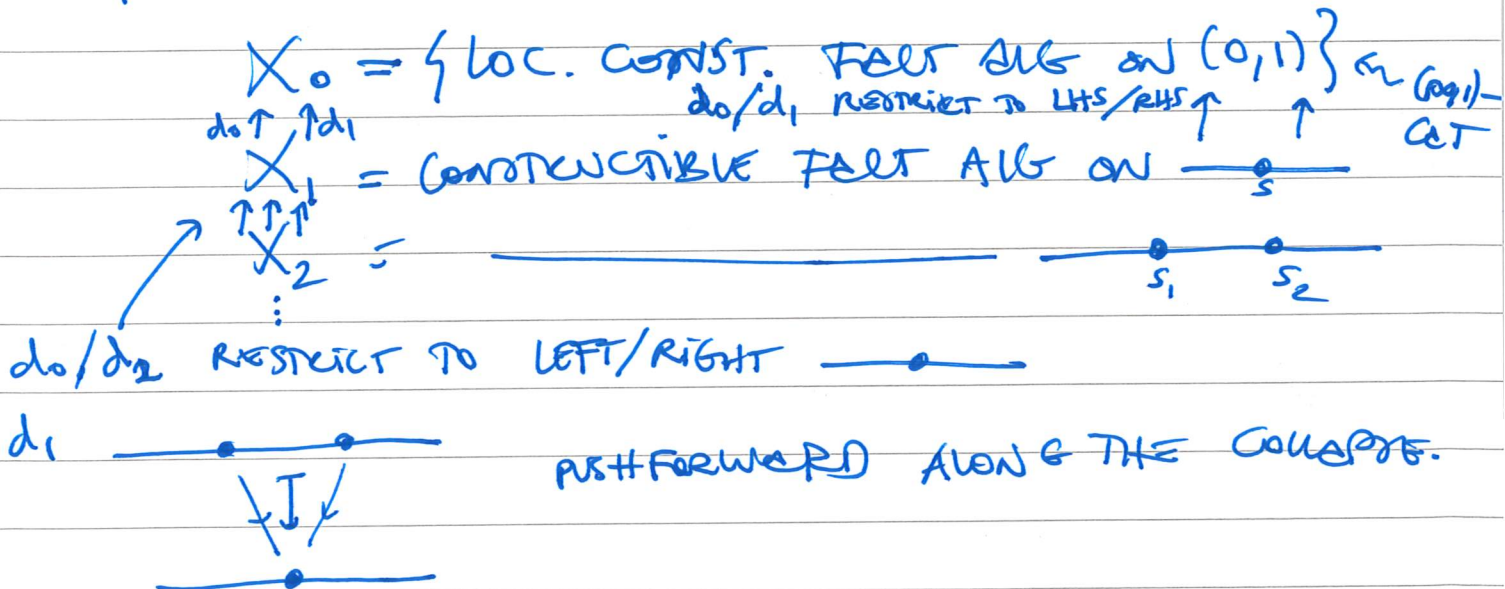 X₀ = { LOC. CONST. FACT ALG ON (0,1) } ← (∞,1)-CAT
d₀↑ ↑d₁ d₀/d₁ RESTRICT TO LHS/RHS ↑ ↑
X₁ = CONSTRUCTIBLE FACT ALG ON
s
↑↑↑
X₂ =
s₁ s₂
⋮
d₀/d₂ RESTRICT TO LEFT/RIGHT
d₁ PUSHFORWARD ALONG THE COLLAPSE.